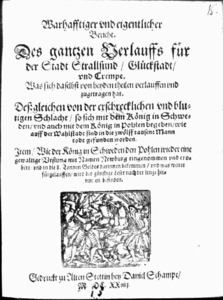 Warhafftiger vnd eigentlicher
Bericht.
Des gantzen Verlauffs für
der Stadt Strallsund / Glückstadt /
vnd Crempe.
Was sich daselbst von beyden theilen verlauffen vnd
zugetragen hat.
Deßgleichen von der erschrecklichen vnd blu-
tigen Schlacht / so sich mit dem König in Schwe-
den / vnd auch mit dem König in Pohlen begeben / wie
auff der Wahlstadt sind in die zwölff tausent Mann
todt gefunden worden.
Item / Wie der König in Schweden den Pohlen wieder eine
gewaltige Vestung mit Namen Newburg eingenommen vnd ero-
bert / vnd in die Tonnen Goldes darinnen bekommen / vnd was weiter
fürgelauffen / wird der günstige Leser nach der lenge hier-
inn zu befinden.
Gedruckt zu Alten Stettin bey David Schampe /